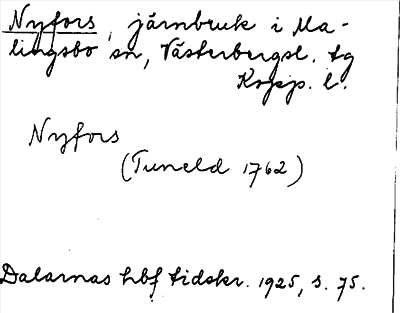 Nyfors, järnbruk i Ma-
lingsbo sn, Västerbergsl. tg
Kopp. l.
Nyfors
(Tuneld 1762)
Dalarnas hbf tidskr. 1925, s. 75.